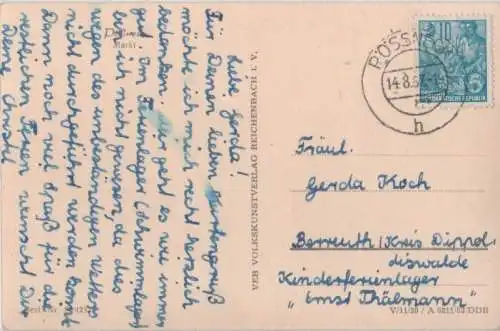 Liebe Gerda!
Für Deinen lieben Kartengruß
möchte ich mich recht herzlich
bedanken. Mir geht es wie immer
gut. Im Ferienlager (Schwimmlager)
bin ich nicht gewesen, da dies
wegen des unbeständigen Wetters
nicht durchgeführt werden konnte.
Dann noch viel Spaß für die
restlichen Ferien wünscht Dir
Deine Christl
Pößneck
Markt
VEB VOLKSKUNSTVERLAG REICHENBACH i. V.
PÖSSNECK
14.8.57
h
10
DEUTSCHE DEMOKRATISCHE REPUBLIK
Fräul.
Gerda Koch
Berreuth (Kreis Dippol-
diswalde
Kinderferienlager
"Ernst Thälmann"